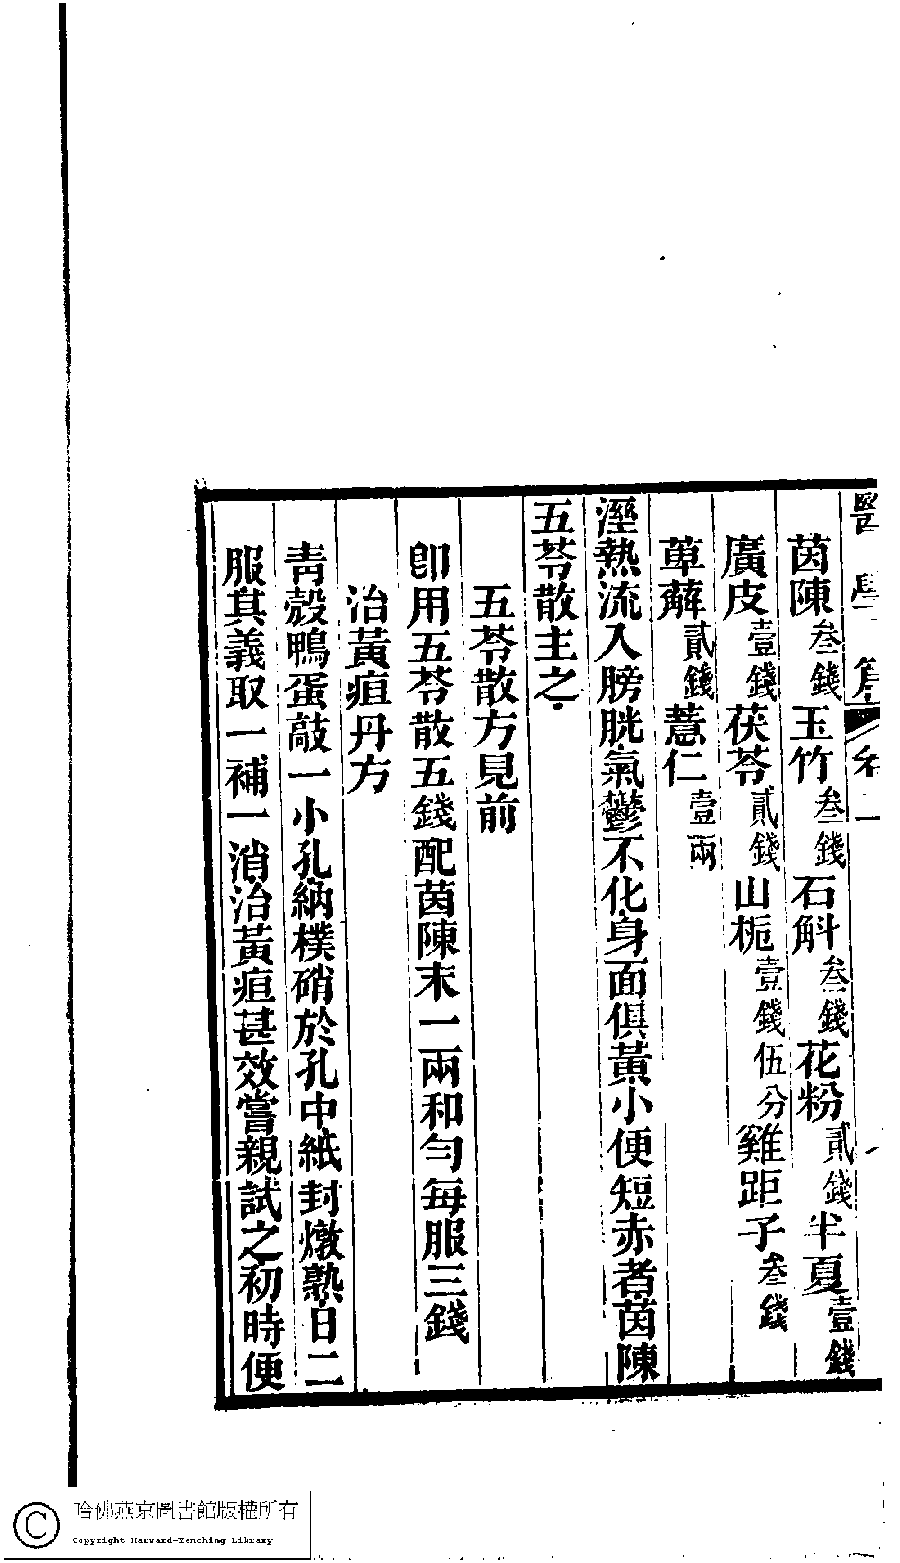 醫學
茵陳叁錢玉竹叁錢石斛叁錢花粉貳錢半夏壹錢
廣皮壹錢茯苓貳錢山梔壹錢伍分雞距子叁錢
萆薢貳錢薏仁壹兩
溼熱流入膀胱氣鬱不化身面俱黃小便短赤者茵陳
五苓散主之
五苓散方見前
卽用五苓散五錢配茵陳末一兩和勻每服三錢
治黃疸丹方
青殼鴨蛋敲一小孔納樸硝於孔中紙封燉熟日二
服其義取一補一消治黃疸甚效嘗親試之初時便
哈佛燕京圖書館版權所有
Copyright Harvard-Yenching Library